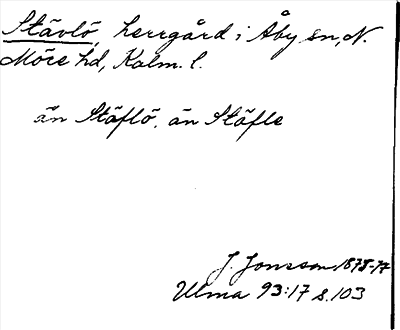 Stävlö, herrgård i Åby sn, N.
Möre hd, Kalm. l.
än Stäflö, än Stäfle
J. Jonsson 1878-77
Ulma 93:17 s.103